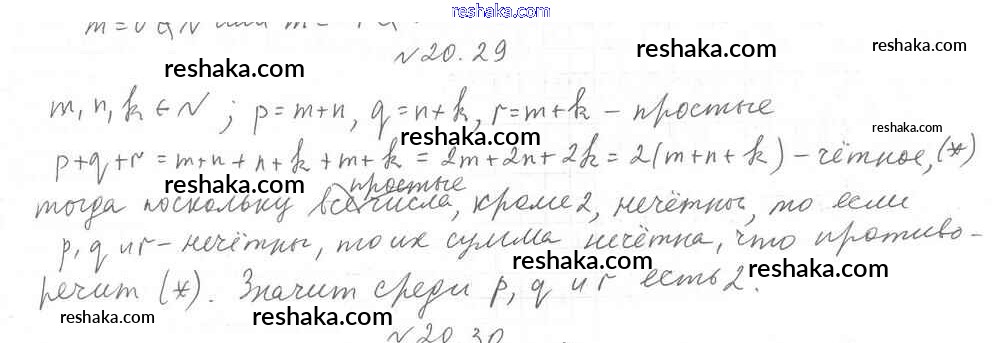 reshaka.com
m=0
№20.29
reshaka.com
reshaka.com
reshaka.com
m, n, k ∈ N; p=m+n, q=n+k, r=m+k – простые
reshaka.com
reshaka.com
p+q+r = m+n+n+k+m+k = 2m+2n+2k = 2(m+n+k) – чётное, (*)
простые
тогда поскольку все числа, кроме 2, нечётны, то если
reshaka.com
p, q и r – нечётны, то их сумма нечётна, что противо-
reshaka.com
reshaka.com
речит (*). Значит среди p, q и r есть 2.
reshaka.com
reshaka.com
№20.30